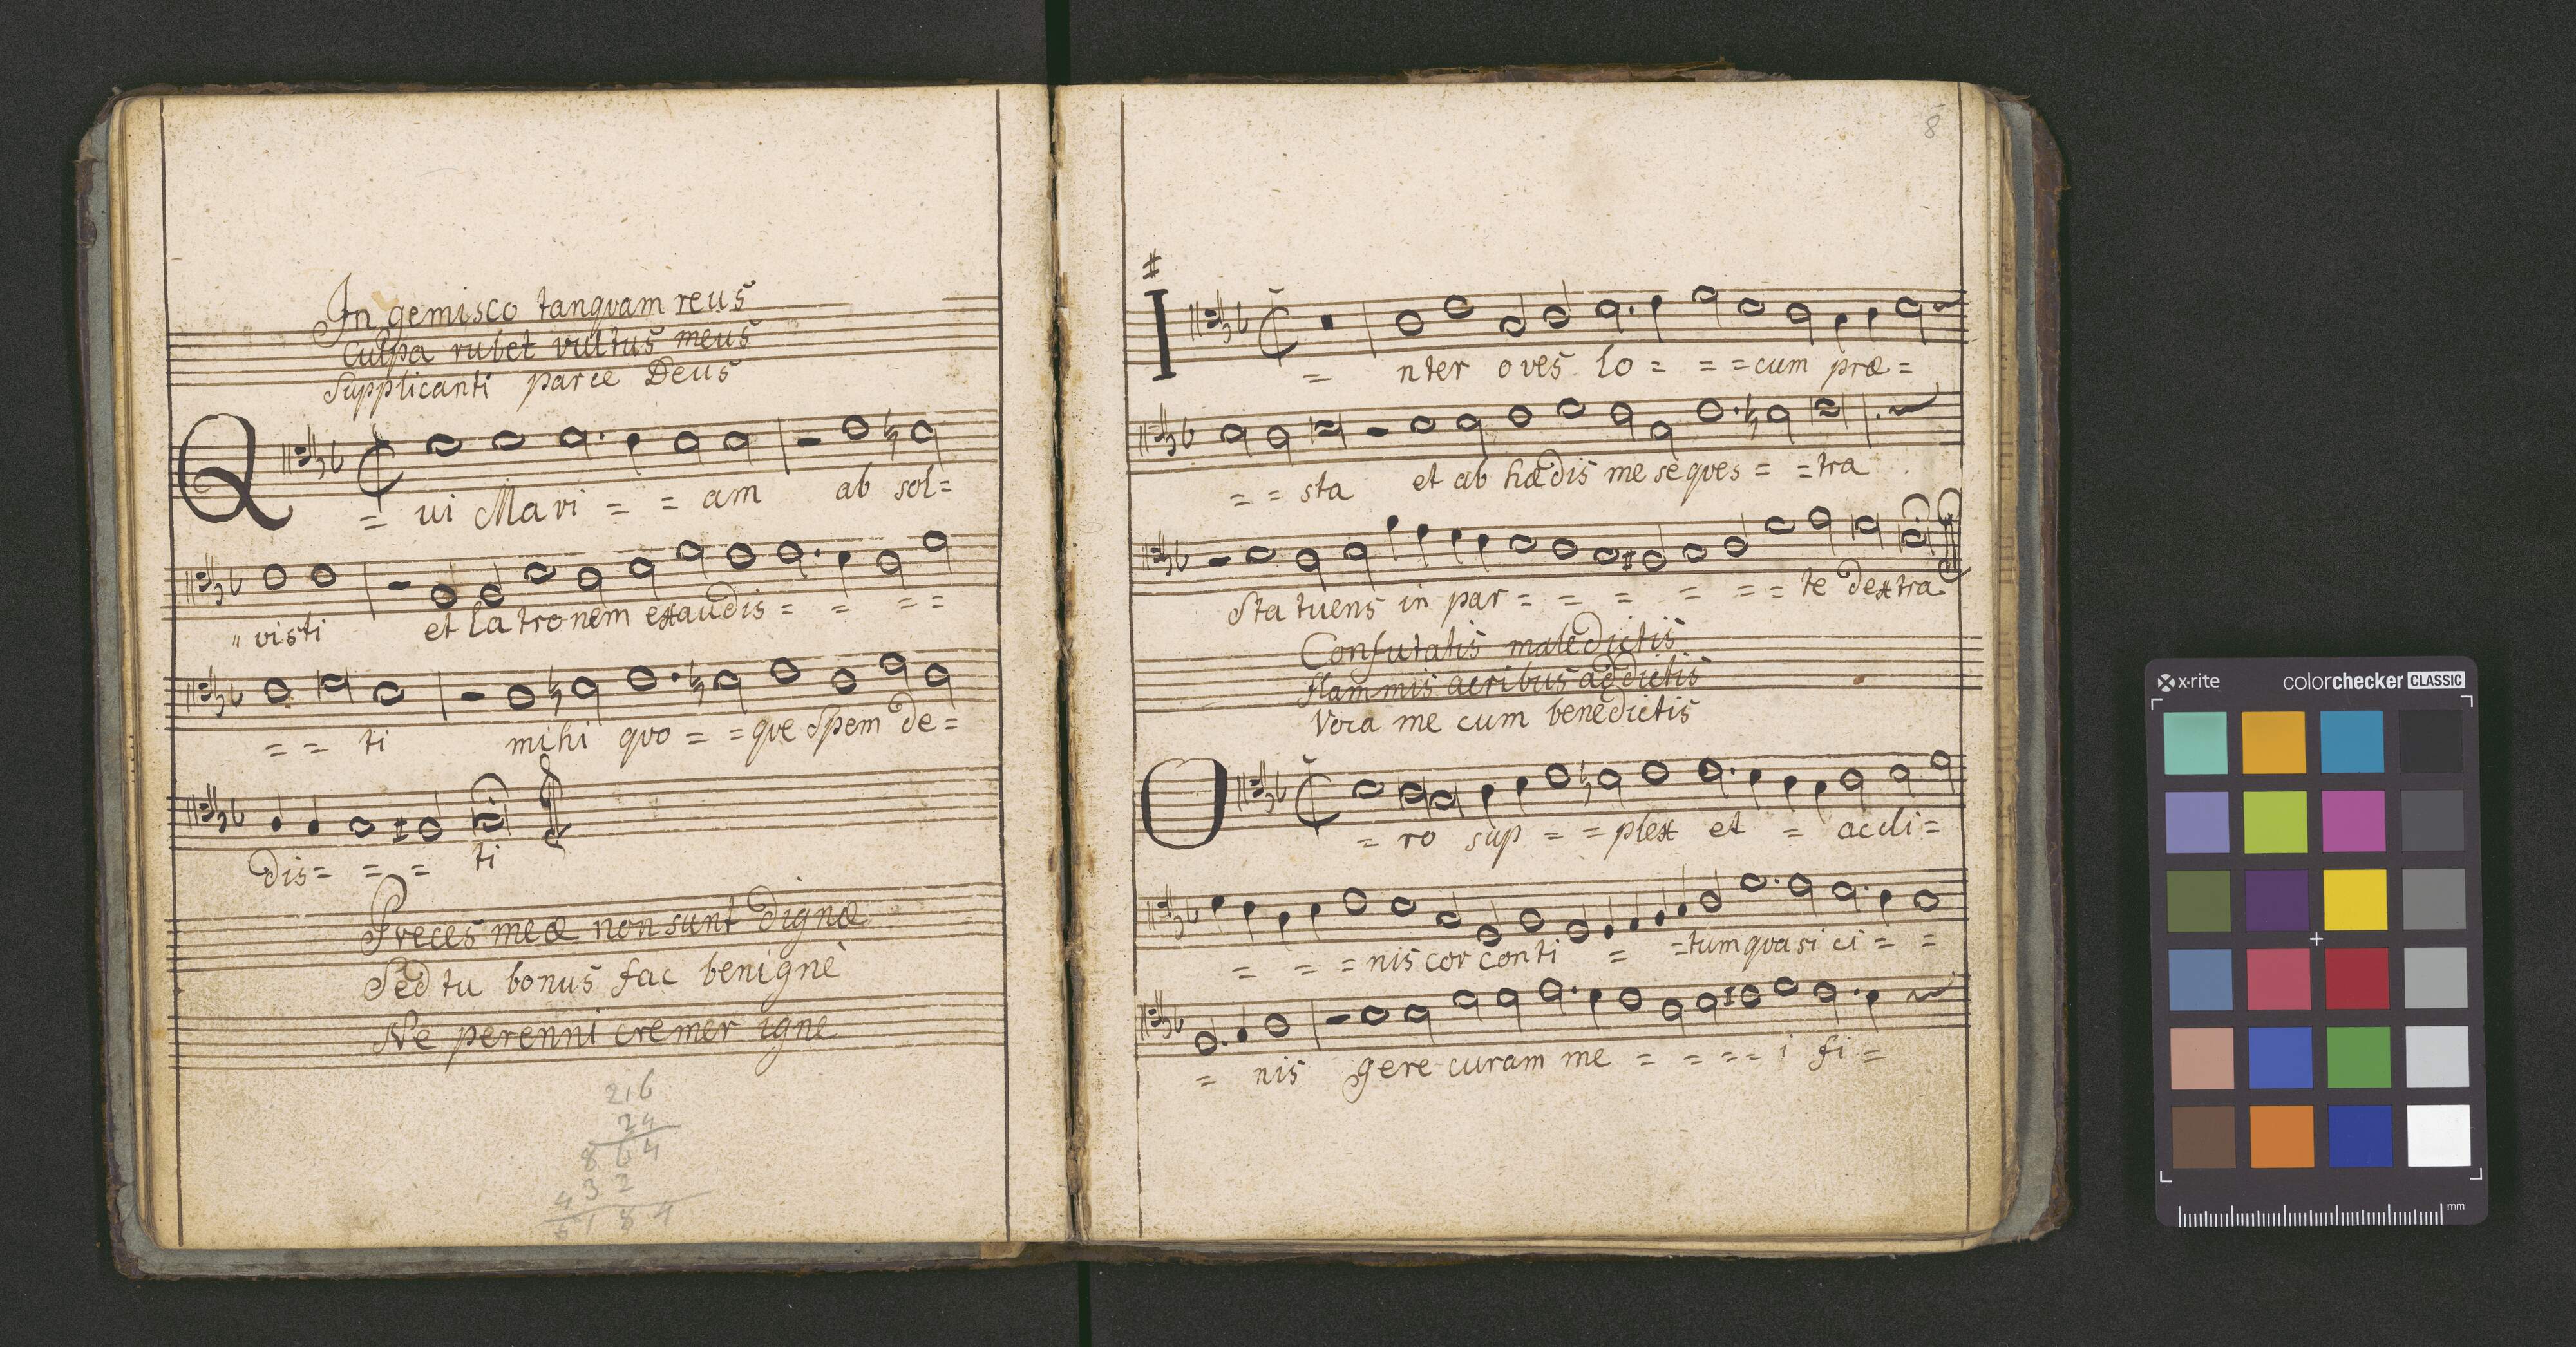 In gemisco tanquam reus
Culpa rubet vultus meus
Supplicanti parce Deus
Q = ui Mari = = am ab sol=
"visti et latronem exaudis= = = =
= = ti mihi quo = = que spem de=
dis= = = ti
Preces meæ non sunt dignæ
Sed tu bonus fac benignè
Ne perenni cremer igne
216
24
864
432
5184
8
I = nter oves lo = = =cum præ =
= = sta et ab hædis me seques = =tra
Statuens in par = = = = = = te dextra
Confutatis maledictis
flammis acribus addictis
Voca me cum benedictis
O = ro sup = =plex et = accli=
= = =nis cor conti = =tum quasi ci = =
= nis gere curam me = = = = i fi =
x-rite colorchecker CLASSIC
mm